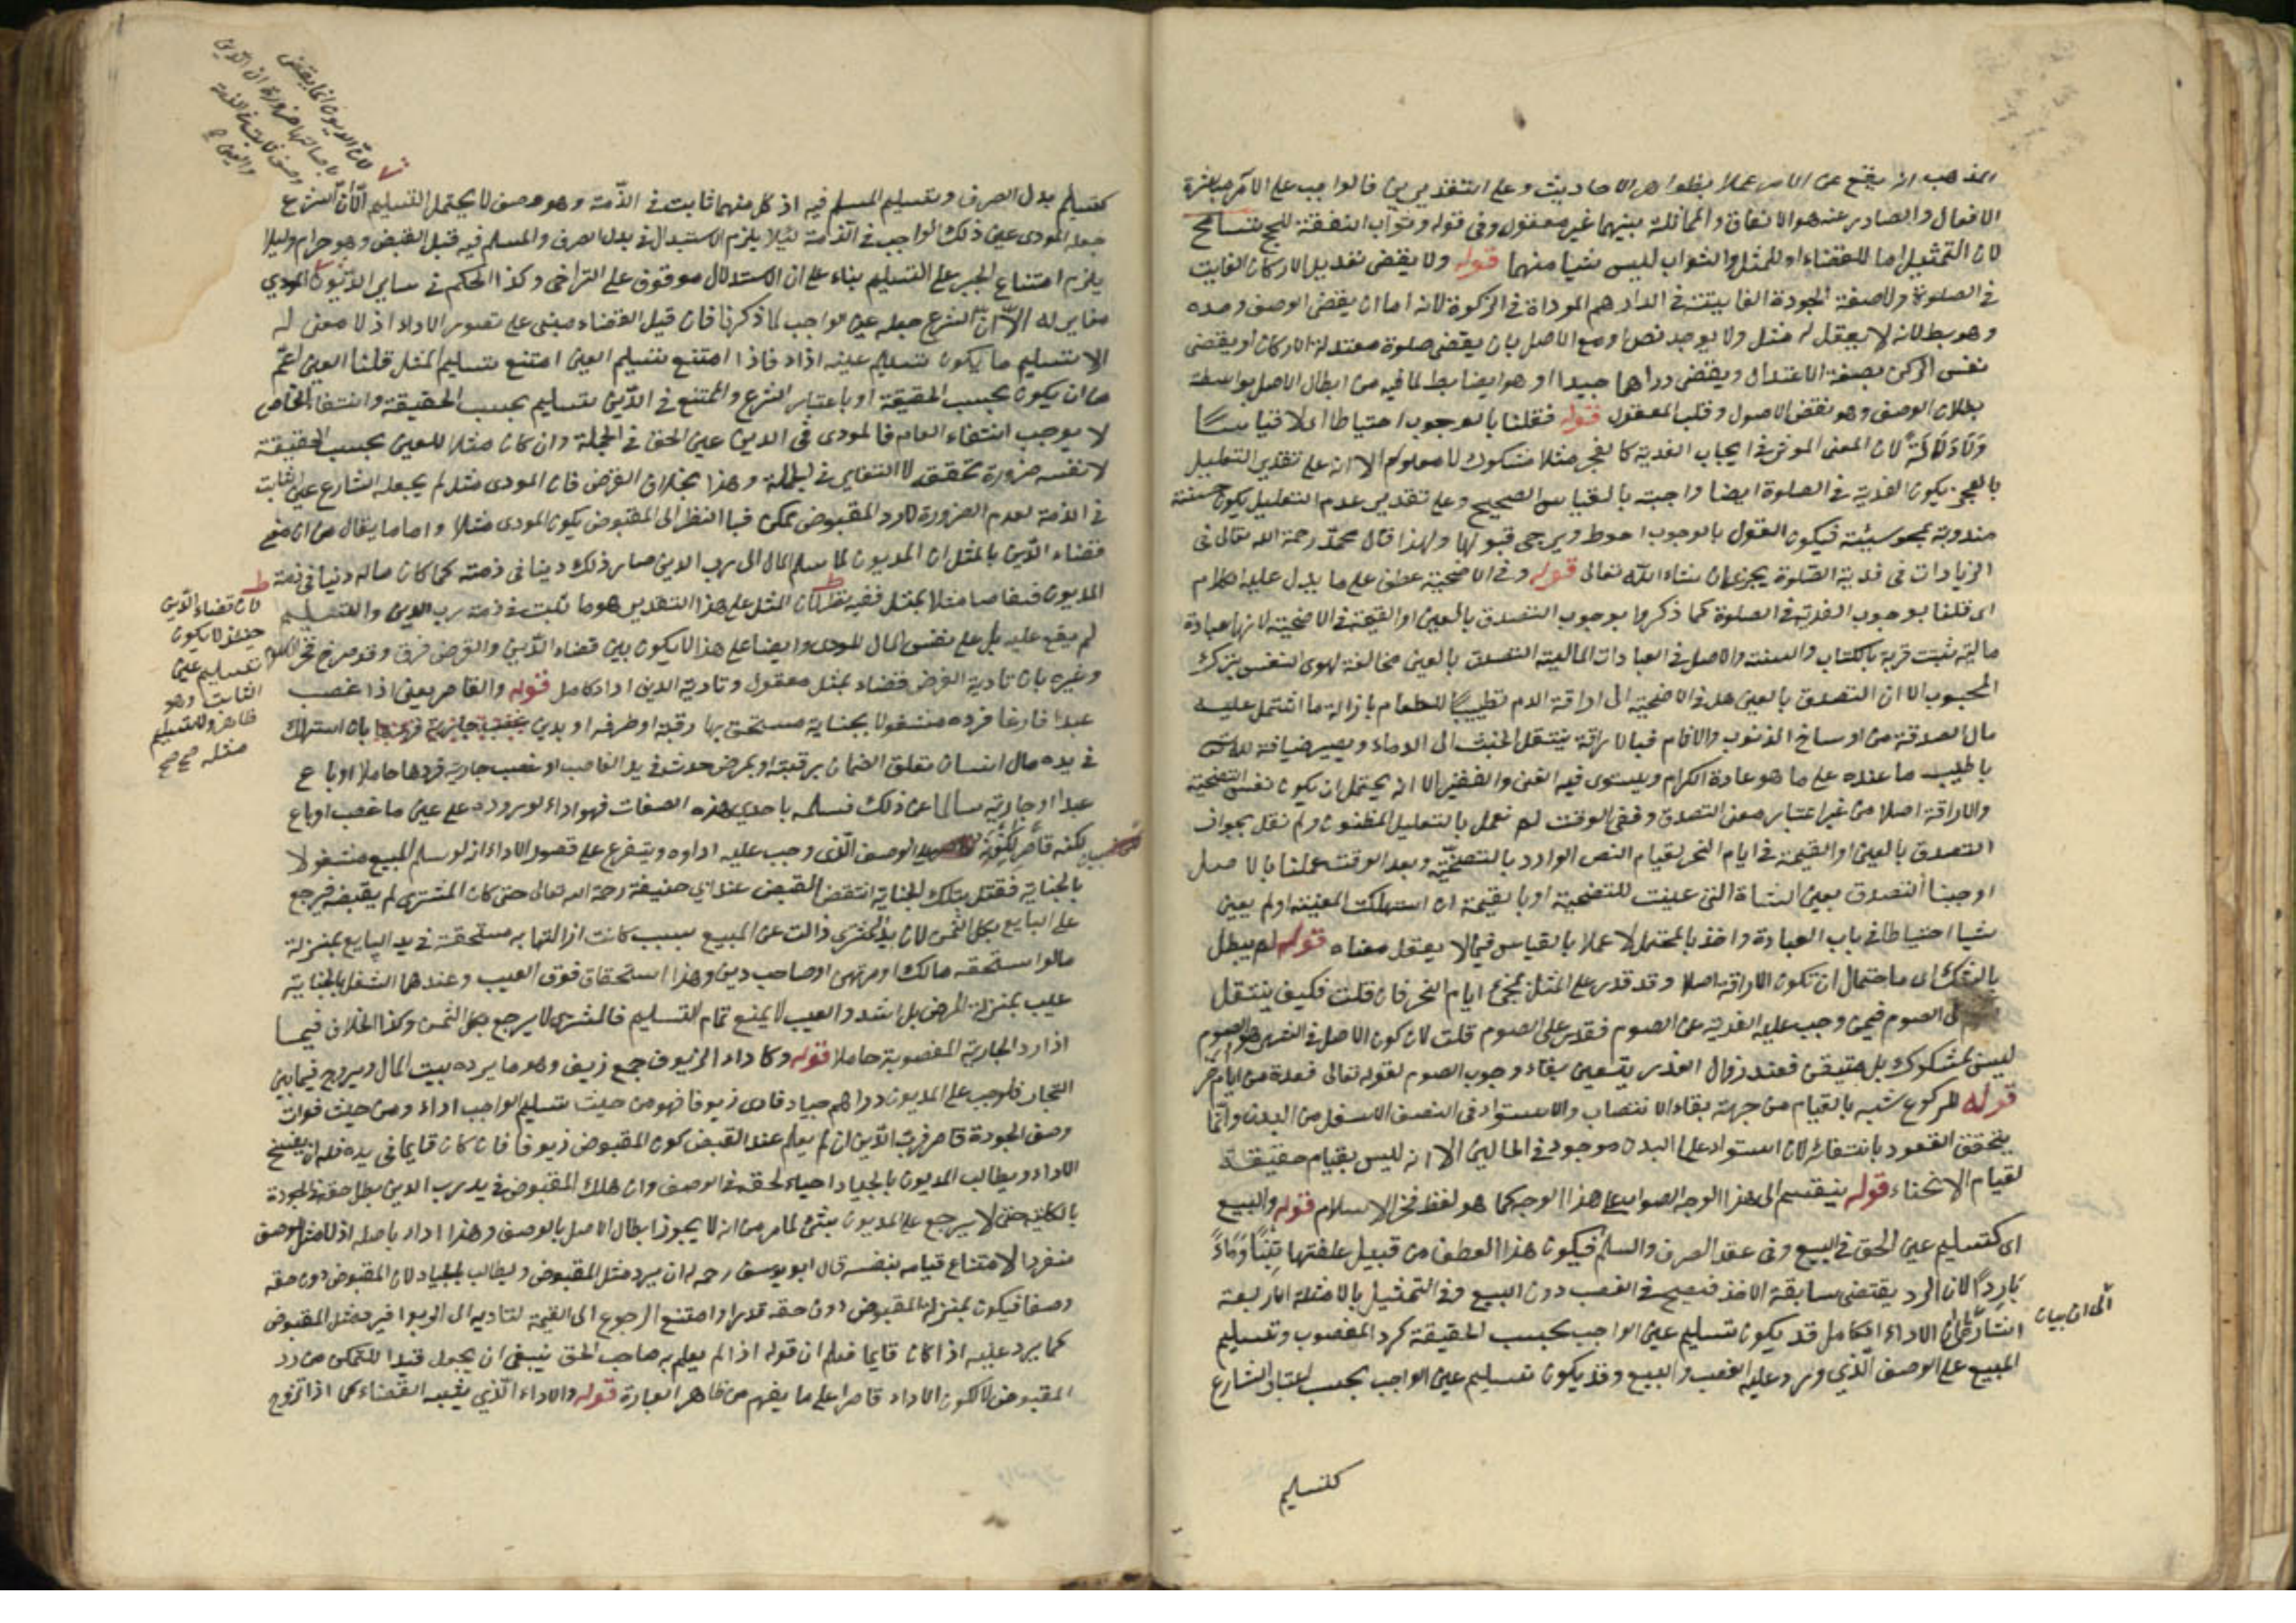 المذهب انه يقع عن الآمر عملا بظواهر الاحاديث وعلى التقديرين فالواجب على الآمر مباشرة
الافعال والصادر عنه هو الانفاق والمماثلة بينهما غير معقول وفي قوله وثواب النفقة للحج تسامح
لان التمثيل اما للقضاء او للمثل والثواب ليس شيا منهما قوله ولا يقضى تعديل الاركان الفايت
في الصلوة ولا صفة الجودة الفايتة في الدراهم المؤداة في الزكوة لانه اما ان يقضى الوصف وحده
وهو بط لانه لا يعقل له مثل ولا يوجد نص او مع الاصل بان يقضى صلوة معتدلة الاركان او يقضى
نفس الركن بصفة الاعتدال ويقضى دراهما جيدا او هو ايضا بط لما فيه من ابطال الاصل بواسطة
بطلان الوصف وهو نقض الاصول وقلب المعقول قوله فقلنا بالوجوب احتياطا اى لا قياسا
ولا دلالة لان المعنى الموثر في ايجاب الفدية كالعجز مثلا مشكوك لا معلوم الا انه على تقدير التعليل
بالعجز يكون الفدية في الصلوة ايضا واجبة بالقياس الصحيح وعلى تقدير عدم التعليل يكون حسنة
مندوبة تمحو سيئة فيكون القول بالوجوب احوط ويرجى قبولها ولهذا قال محمد رحمة الله تعالى في
الزيادات في فدية الصلوة يجزئ ان شاء الله تعالى قوله وفي الاضحية عطف على ما يدل عليه الكلام
اى قلنا بوجوب الفدية في الصلوة كما ذكروا بوجوب التصدق بالعين او القيمة في الاضحية لانها عبادة
مالية ثبت قربة بالكتاب والسنة والاصل في العبادات المالية التصدق بالعين مخالفة لهوى النفس بترك
المحبوب الا ان التصدق بالعين نقل في الاضحية الى اراقة الدم تطييبا للطعام بازالة ما اشتمل عليه
مال الصدقة من اوساخ الذنوب والآثام فبالاراقة ينتقل الخبث الى الدماء ويصير ضيافة الله
باطيب ما عنده على ما هو عادة الكرام ويستوى فيه الغنى والفقير الا انه يحتمل ان يكون نفس التضحية
والاراقة اصلا من غير اعتبار معنى التصدق وفي الوقت لم نعمل بالتعليل المظنون ولم نقل بجواز
التصدق بالعين او القيمة في ايام النحر لقيام النص الوارد بالتضحية وبعد الوقت عملنا بالاصل
اوجبنا التصدق بعين الشاة التى عينت للتضحية او بالقيمة ان استهلكت المعينة او لم يعين
شيا احتياطا في باب العبادة واخذ بالمحتمل لا عملا بالقياس فيما لا يعقل معناه قوله لم يبطل
بالشك اى باحتمال ان تكون الاراقة اصلا وقد قدر على المثل بمجئ ايام النحر فان قلت فكيف ينتقل
الى الصوم فيمن وجب عليه الفدية عن الصوم فقدر على الصوم قلت لان كون الاصل في الصوم
ليس بمشكوك بل متيقن فعند زوال العذر يتعين بقاء وجوب الصوم لقوله تعالى فعدة من ايام اخر
قوله للركوع شبه بالقيام من جهة بقاء الانتصاب والاستواء في النصف الاسفل من البدن وانما
يتحقق القعود بانتفائه لان استواء اعلى البدن موجود في الحالين الا انه ليس بقيام حقيقة
لقيام الانحناء قوله ينقسم الى هذا الوجه الصواب على هذا الوجه كما هو لفظ فخر الاسلام قوله والبيع
اى كتسليم عين الحق في البيع وفي عقد الصرف والسلم فيكون هذا العطف من قبيل علفتها تبنا وماء
باردا لان الرد يقتضى سابقة الاخذ فيصح في الغصب دون البيع وفي التمثيل بالامثلة الاربعة
اشارة الى ان الاداء الكامل قد يكون تسليم عين الواجب بحسب الحقيقة كرد المغصوب وتسليم
المبيع على الوصف الذى ورد عليه الغصب والبيع وقد يكون تسليم عين الواجب بحسب اعتبار الشارع
الى ان بيان
كتسليم
كتسليم بدل الصرف وتسليم المسلم فيه اذ كل منهما ثابت في الذمة وهو وصف لا يحتمل التسليم الا ان الشرع
جعل المؤدى عين ذلك الواجب في الذمة لئلا يلزم الاستبدال في بدل الصرف والمسلم فيه قبل القبض وهو حرام ولئلا
يلزم امتناع الجبر على التسليم بناء على ان الاستبدال موقوف على التراضى وكذا الحكم في ساير الديون المؤدى
مغاير له الا ان الشرع جعله عين الواجب لما ذكرنا فان قيل القضاء مبنى على تصور الاداء اذ لا معنى له
الا تسليم ما يكون تسليم عينه اداء فاذا امتنع تسليم العين امتنع تسليم المثل قلنا العين اعم
من ان يكون بحسب الحقيقة او باعتبار الشرع والممتنع في الدين تسليم بحسب الحقيقة وانتفاء الخاص
لا يوجب انتفاء العام فالمودى في الدين عين الحق في الجملة وان كان مثلا للعين بحسب الحقيقة
لا نفسه ضرورة تحقق التغاير في الجملة وهذا بخلاف القرض فان المودى مثل لم يجعله الشارع عين الثابت
في الذمة لعدم الضرورة لان رد المقبوض ممكن فبالنظر الى المقبوض يكون المودى مثلا واما ما يقال من ان معنى
قضاء الدين بالمثل ان المديون لما سلم المال الى رب الدين صار ذلك دينا في ذمته كما كان ماله دينا في ذمة
المديون فتقاصا مثلا بمثل ففيه نظر لان المثل على هذا التقدير هو ما ثبت في ذمة رب الدين والتسليم
لم يقع عليه بل على نفس المال المودى وايضا على هذا لا يكون بين قضاء الدين والقرض فرق وقد صرح فخر الاسلام
وغيره بان تادية القرض قضاء بمثل معقول وتادية الدين اداء كامل قوله والقاصر يعنى اذا غصب
عبدا فارغا فرده مشغولا بجناية مستحق بها رقبته او طرفه او بدين بان استهلك
في يده مال انسان تعلق الضمان برقبته او بمرض حدث في يد الغاصب او غصب جارية فردها حاملا او باع
عبدا او جارية سالما عن ذلك فسلمه باحدى هذه الصفات فهو اداء لوروده على عين ما غصب او باع
لكنه قاصر لكونه على الوصف الذى وجب عليه اداؤه ويتفرع على قصور الاداء انه لو سلم المبيع مشغولا
بالجناية فقتل بتلك الجناية انتقض القبض عند ابى حنيفة رحمة الله تعالى حتى كان المشترى لم يقبضه فيرجع
على البايع بكل الثمن لان يد المشترى زالت عن المبيع بسبب كانت ازالتها به مستحقة في يد البايع بمنزلة
ما لو استحقه مالك او مرتهن او صاحب دين وهذا استحقاق فوق العيب وعندهما الشغل بالجناية
عيب بمنزلة المرض بل اشد والعيب لا يمنع تمام التسليم فالمشترى لا يرجع بكل الثمن وكذا الخلاف فيما
اذا رد الجارية المغصوبة حاملا قوله وكاداء الزيوف جمع زيف وهو ما يرده بيت المال ويروج فيما بين
التجار فلو وجب على المديون دراهم جياد فادى زيوفا فهو من حيث تسليم الواجب اداء ومن حيث فوات
وصف الجودة قاصر فرب الدين ان لم يعلم عند القبض كون المقبوض زيوفا فان كان قايما في يده فله ان يفسخ
الاداء ويطالب المديون بالجياد احياء لحقه في الوصف وان هلك المقبوض في يد رب الدين بطل حقه في الجودة
بالكلية حتى لا يرجع على المديون بشئ لما مر من انه لا يجوز ابطال الاصل بالوصف وهذا اداء باصله اذ لا مثل للوصف
منفردا لامتناع قيامه بنفسه قال ابو يوسف رحمه ان يرد مثل المقبوض ويطالب بالجياد لان المقبوض دون حقه
وصفا فيكون بمنزلة المقبوض دون حقه قدرا وامتنع الرجوع الى القيمة لتاديه الى الربوا فيرد مثل المقبوض
كما يرد عينه اذا كان قايما فعلم ان قوله اذا لم يعلم به صاحب الحق ينبغى ان يجعل قيدا للتمكن من رد
المقبوض لا لكون الاداء قاصرا على ما يفهم من ظاهر العبارة قوله والاداء الذى يشبه القضاء كما اذا تزوج
لان الديون انما يقضى
بامثالها ضرورة ان الدين
وصف ثابت في الذمة
والعين
لان قضاء الدين
حينئذ لا يكون
تسليم عين
الثابت وهو
ظاهر ولا تسليم
مثله صح صح